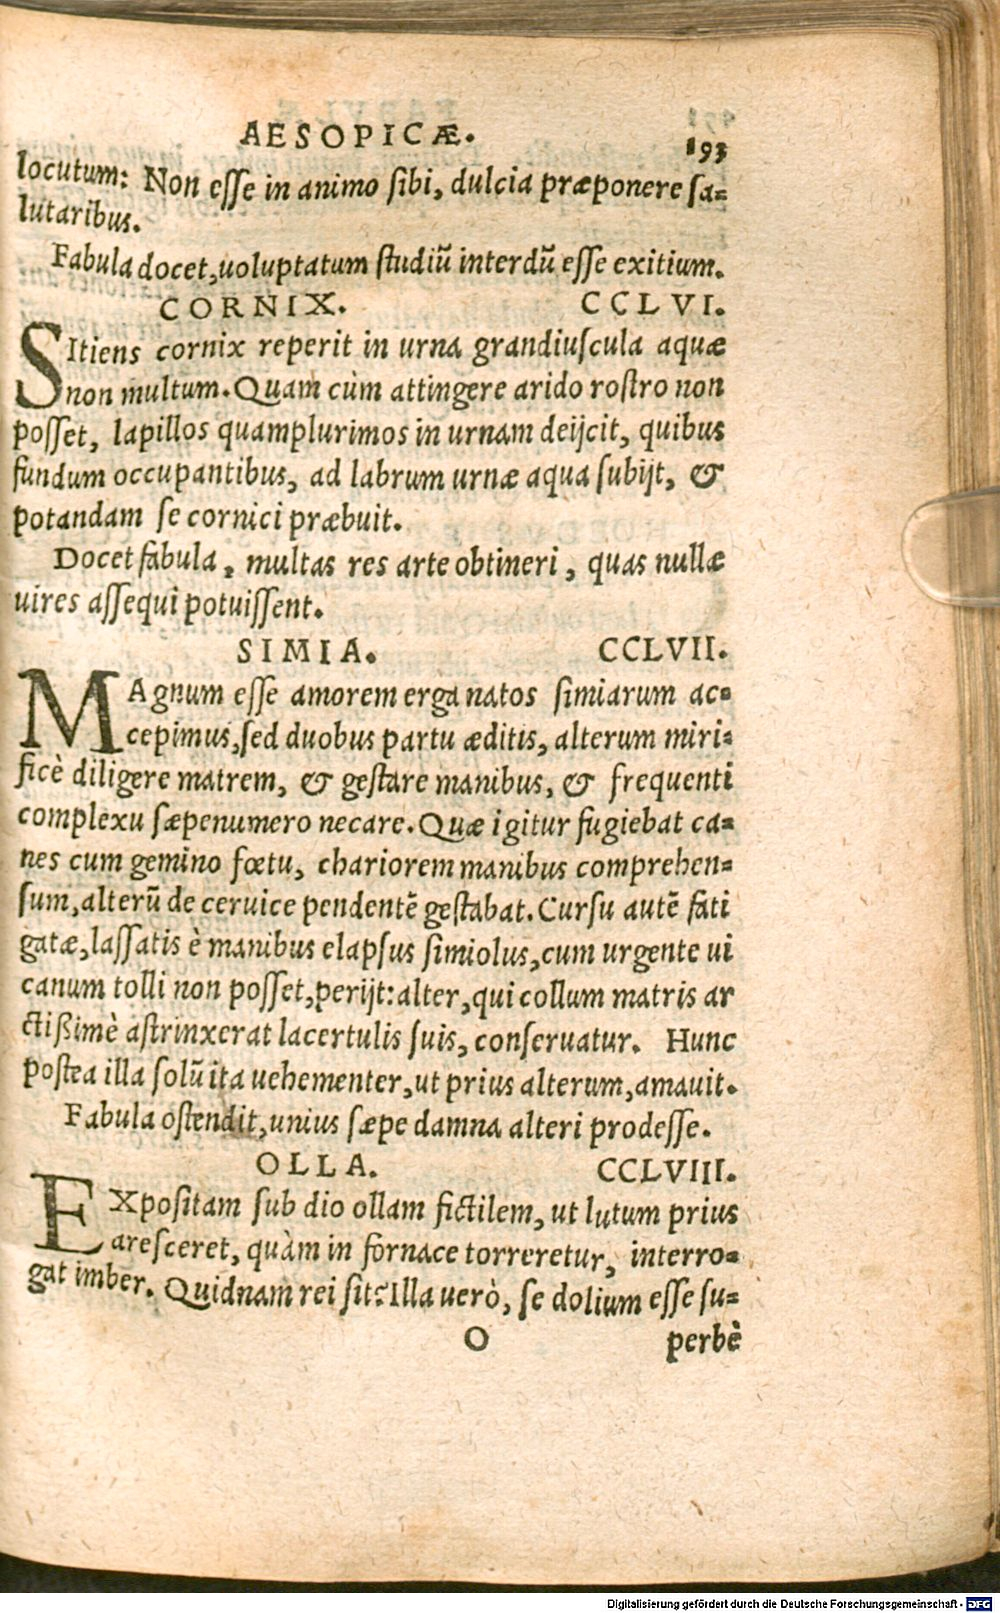 AESOPICÆ. 193
locutum: Non eſſe in animo ſibi, dulcia præponere ſa-
lutaribus.
Fabula docet, uoluptatum ſtudiũ interdũ eſſe exitium.
CORNIX. CCLVI.
SItiens cornix reperit in urna grandiuſcula aquæ
non multum. Quam cùm attingere arido roſtro non
poſſet, lapillos quamplurimos in urnam deijcit, quibus
fundum occupantibus, ad labrum urnæ aqua ſubijt, &
potandam ſe cornici præbuit.
Docet fabula, multas res arte obtineri, quas nullæ
uires aſſequi potuiſſent.
SIMIA. CCLVII.
MAgnum eſſe amorem erga natos ſimiarum ac-
cepimus, ſed duobus partu æditis, alterum miri-
ficè diligere matrem, & geſtare manibus, & frequenti
complexu ſæpenumero necare. Quæ igitur fugiebat ca-
nes cum gemino fœtu, chariorem manibus comprehen-
ſum, alterũ de ceruice pendentẽ geſtabat. Curſu autẽ fati
gatæ, laſſatis è manibus elapſus ſimiolus, cum urgente ui
canum tolli non poſſet, perijt: alter, qui collum matris ar
ctißimè aſtrinxerat lacertulis ſuis, conſeruatur. Hunc
poſtea illa ſolũ ita uehementer, ut prius alterum, amauit.
Fabula oſtendit, unius ſæpe damna alteri prodeſſe.
OLLA. CCLVIII.
EXpoſitam ſub dio ollam fictilem, ut lutum prius
areſceret, quàm in fornace torreretur, interro-
gat imber. Quidnam rei ſit? Illa uerò, ſe dolium eſſe ſu-
O perbè
Digitalisierung gefördert durch die Deutsche Forschungsgemeinschaft - DFG